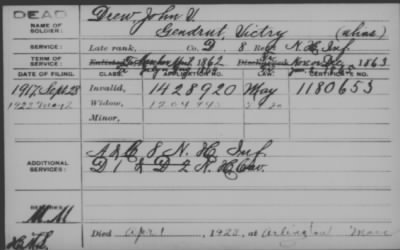 DEAD
NAME OF SOLDIER: Drew, John V.
Gendrut, Victry (alias)
SERVICE: Late rank, Co. D, 8 Reg't N.H. Inf.
TERM OF SERVICE: Enlisted 1862 Discharged 1863
DATE OF FILING. CLASS. APPLICATION NO. LAW. CERTIFICATE NO.
1917 Sept 28 Invalid, 1428920 May 1180653
1923 May 2 Widow,
Minor,
ADDITIONAL SERVICES: A & C 8 N.H. Inf.
D 1 & D 2 N.H. Cav.
REMARKS:
MM
Died Apr 1, 1923, at Arlington Mass